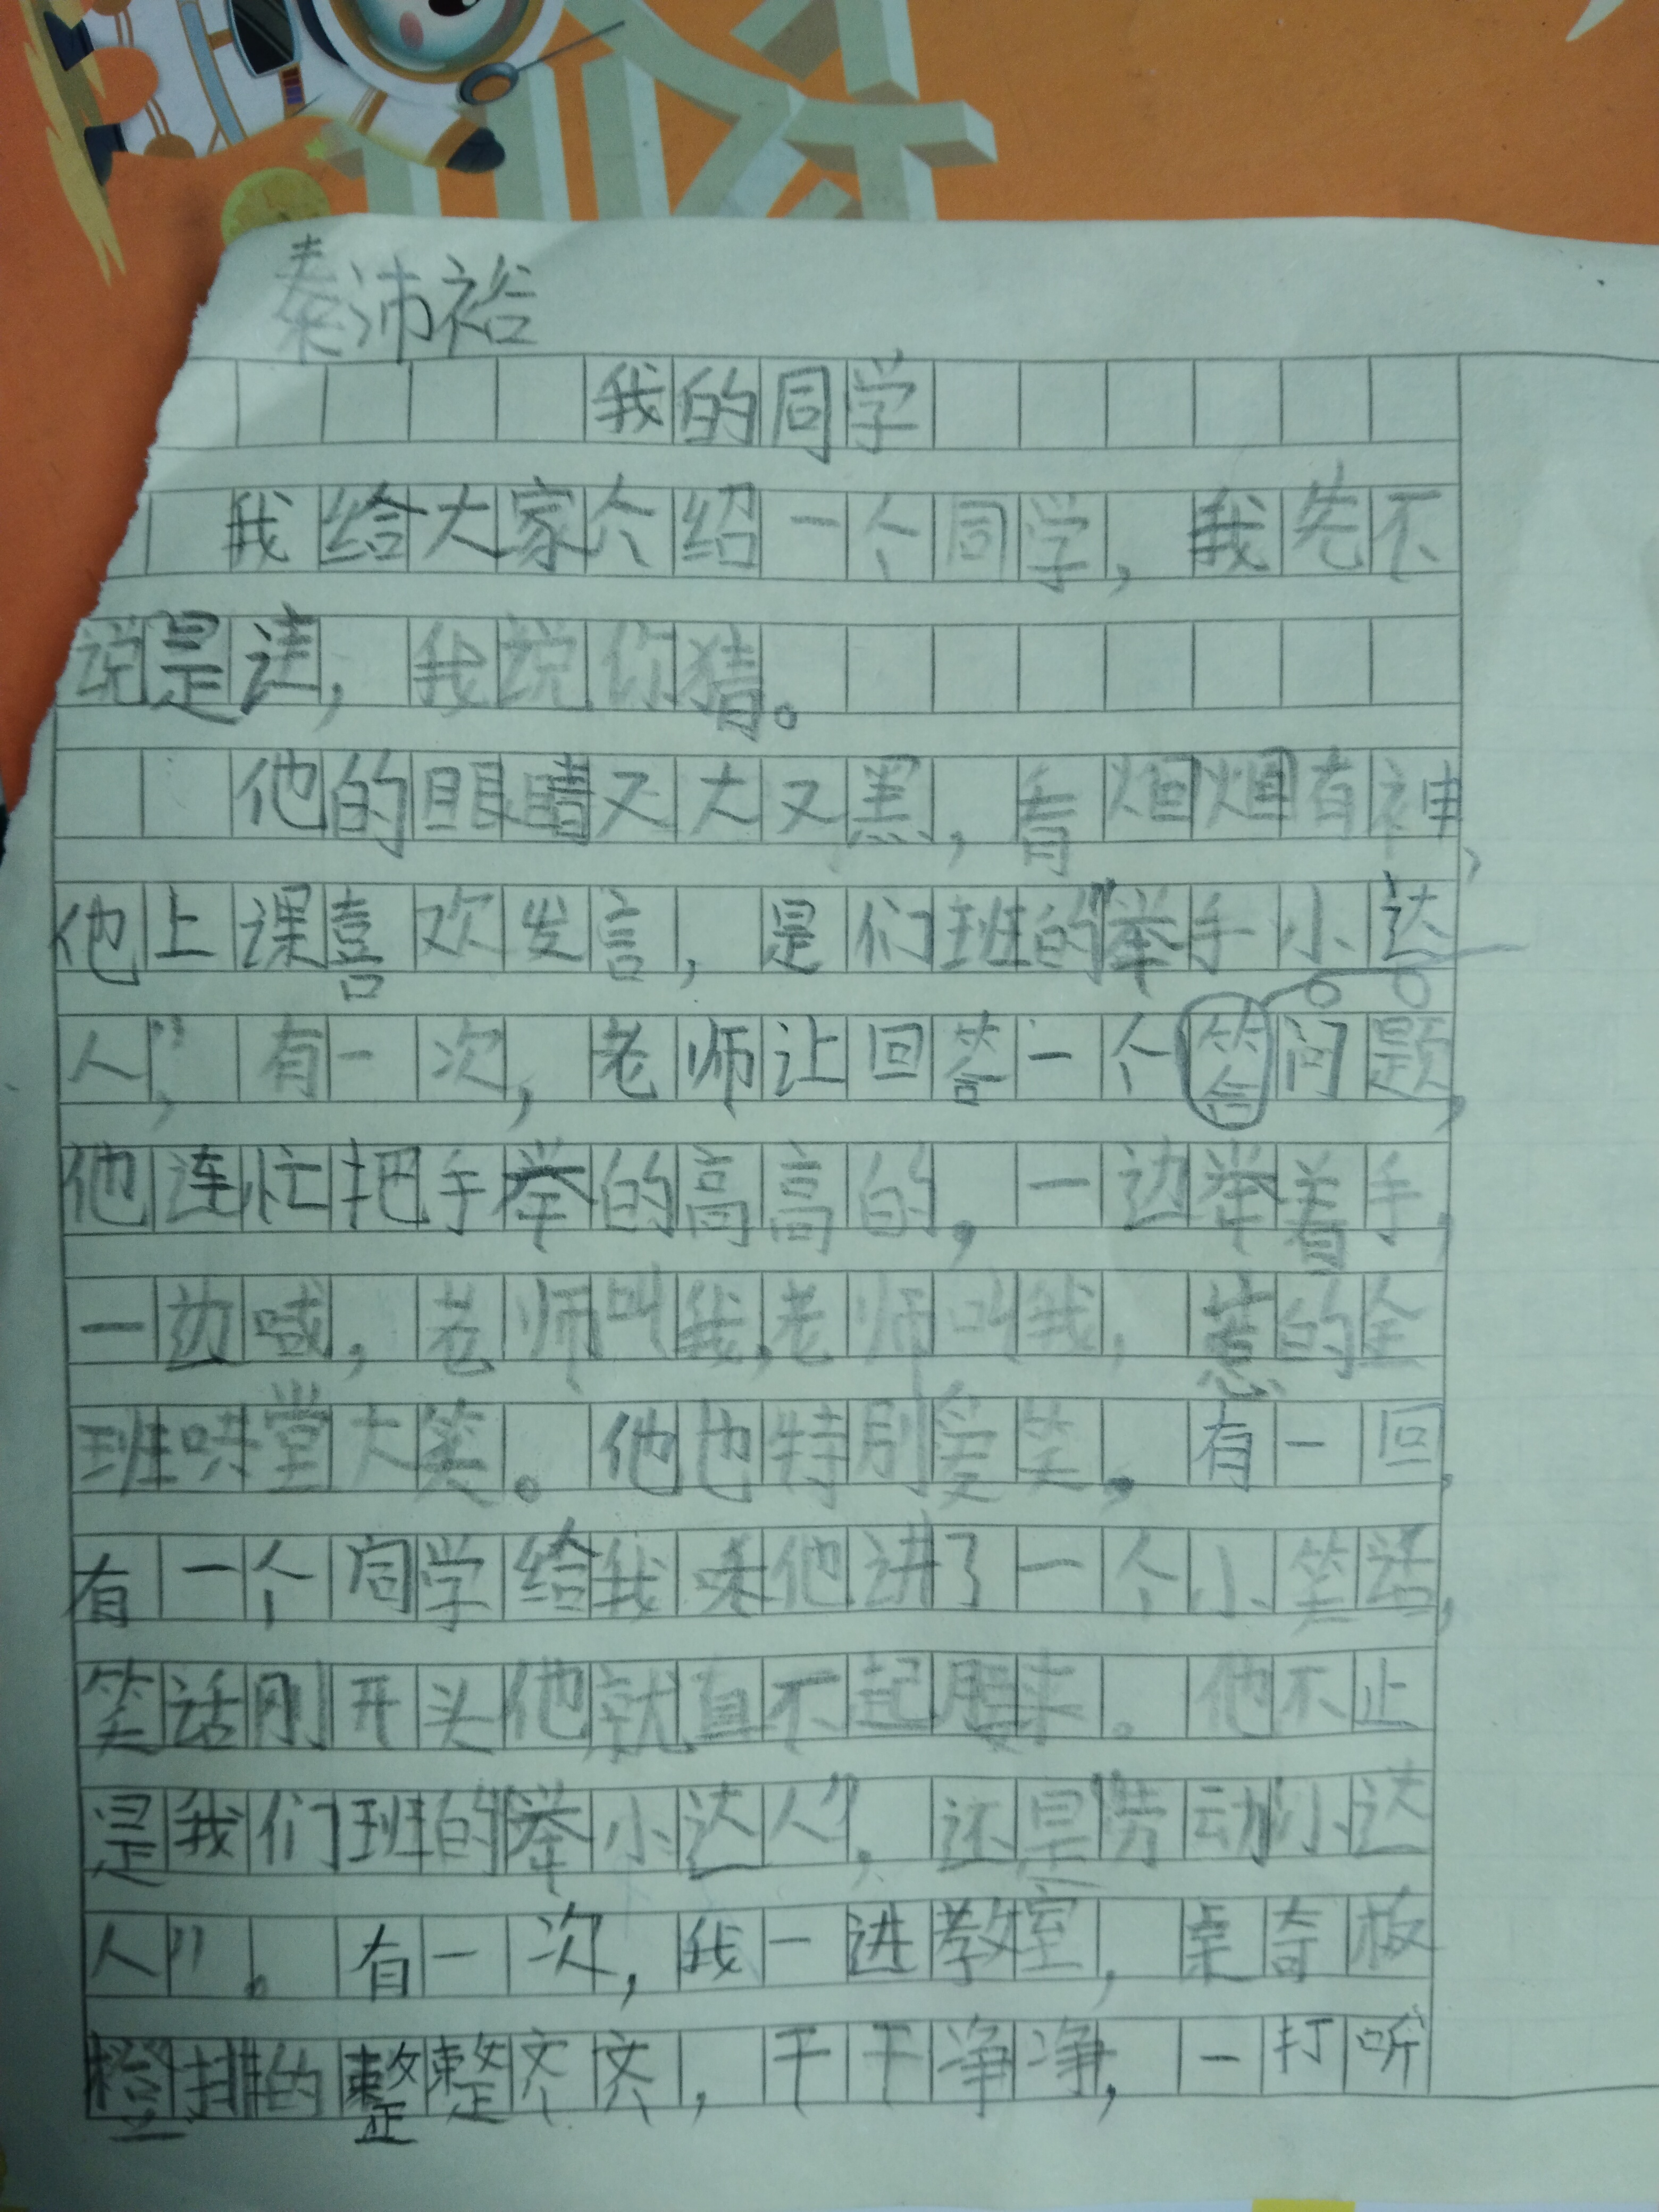 秦沛裕
我的同学
我给大家介绍一个同学，我先不
说是谁，我说你猜。
他的眼睛又大又黑，看炯炯有神，
他上课喜欢发言，是们班的“举手小达
人”，有一次，老师让回答一个答问题，
他连忙把手举的高高的，一边举着手，
一边喊，老师叫我，老师叫我，惹的全
班哄堂大笑。他也特别爱笑，有一回，
有一个同学给我和他讲了一个小笑话，
笑话刚开头他就直不起腰来。他不止
是我们班的“举小达人”，还是“劳动小达
人”。有一次，我一进教室，桌奇板
橙排的整整齐齐，干干净净，一打听